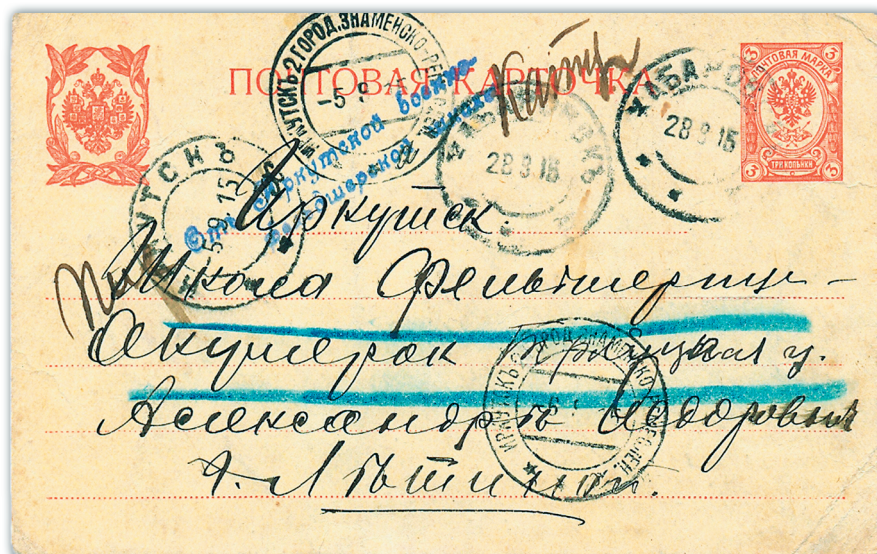 ПОЧТОВАЯ КАРТОЧКА
ПОЧТОВАЯ МАРКА
3 3
3 3
ТРИ КОПѢЙКИ
ИРКУТСКЪ-2 ГОРОД. ЗНАМЕНСКО-РЕМЕСЛЕН.
-5 9
ХАБАРОВСКЪ
28 8 15
ХАБАРОВСКЪ
28 8 15
ИРКУТСКЪ
5 9 15
Иркутской военно-
фельдшерской школы
Иркутск.
Школа Фельдшериц-
Акушерок
Александрѣ Ѳедоровнѣ
Лѣтиной.
ИРКУТСКЪ-2 ГОРОД. ЗНАМЕНСКО-РЕМЕСЛЕН.